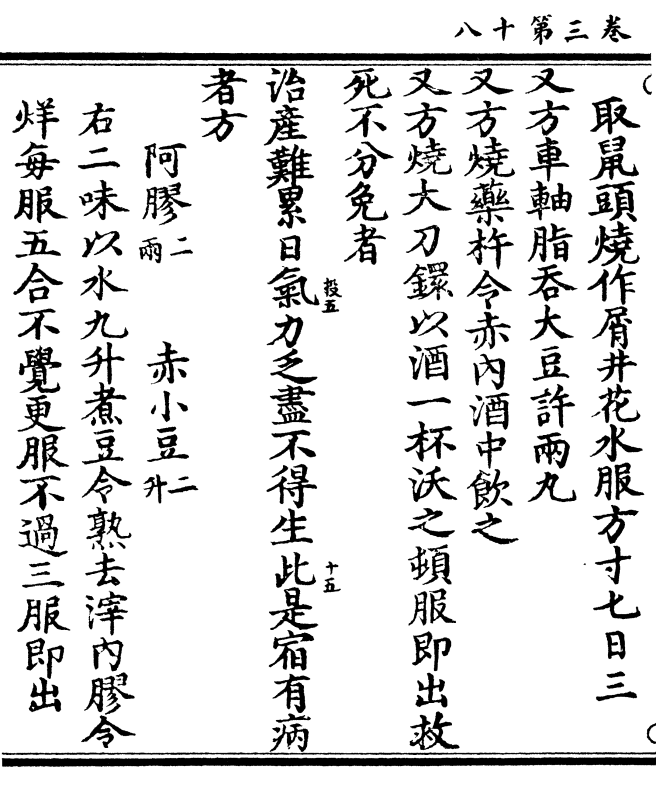 卷三第十八
取鼠頭燒作屑井花水服方寸匕日三
又方車軸脂吞大豆許兩丸
又方燒藥杵令赤內酒中飲之
又方燒大刀鐶以酒一杯沃之頓服即出救
死不分免者
治產難累日氣力乏盡不得生此是宿有病
投五
十五
者方
阿膠二兩 赤小豆二升
右二味以水九升煮豆令熟去滓內膠令
烊每服五合不覺更服不過三服即出